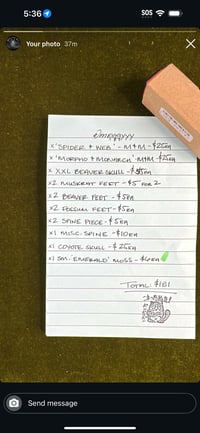 5:36
SOS
Your photo 37m
Omggyyy
x 'SPIDER + WEB' - M+M - $25EA
x 'MORPHO + MONARCH' - M+M - $25EA
x XXL BEAVER SKULL - $35EA
x2 MUSKRAT FEET - $5 FOR 2
x2 BEAVER FEET - $5EA
x2 POSSUM FEET - $5EA
x2 SPINE PIECE - $5EA
x1 MISC. SPINE - $10EA
x1 COYOTE SKULL - $25EA
x1 SM. 'EMERALD' MOSS - $6EA
TOTAL: $161
Send message